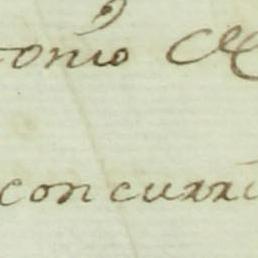 tonio
concurri